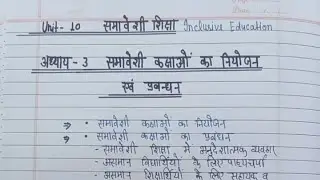 Unit- 10 समावेशी शिक्षा Inclusive Education
अध्याय - 3 समावेशी कक्षाओं का नियोजन
एवं प्रबन्धन
⇒ • समावेशी कक्षाओं का नियोजन
⇒ • समावेशी कक्षाओं का प्रबंधन
- समावेशी शिक्षा में अनुदेशात्मक व्यवस्था
- असमान विद्यार्थियों के लिए पाठ्यचर्या
- असमान शिक्षार्थियों के लिए सहायक व